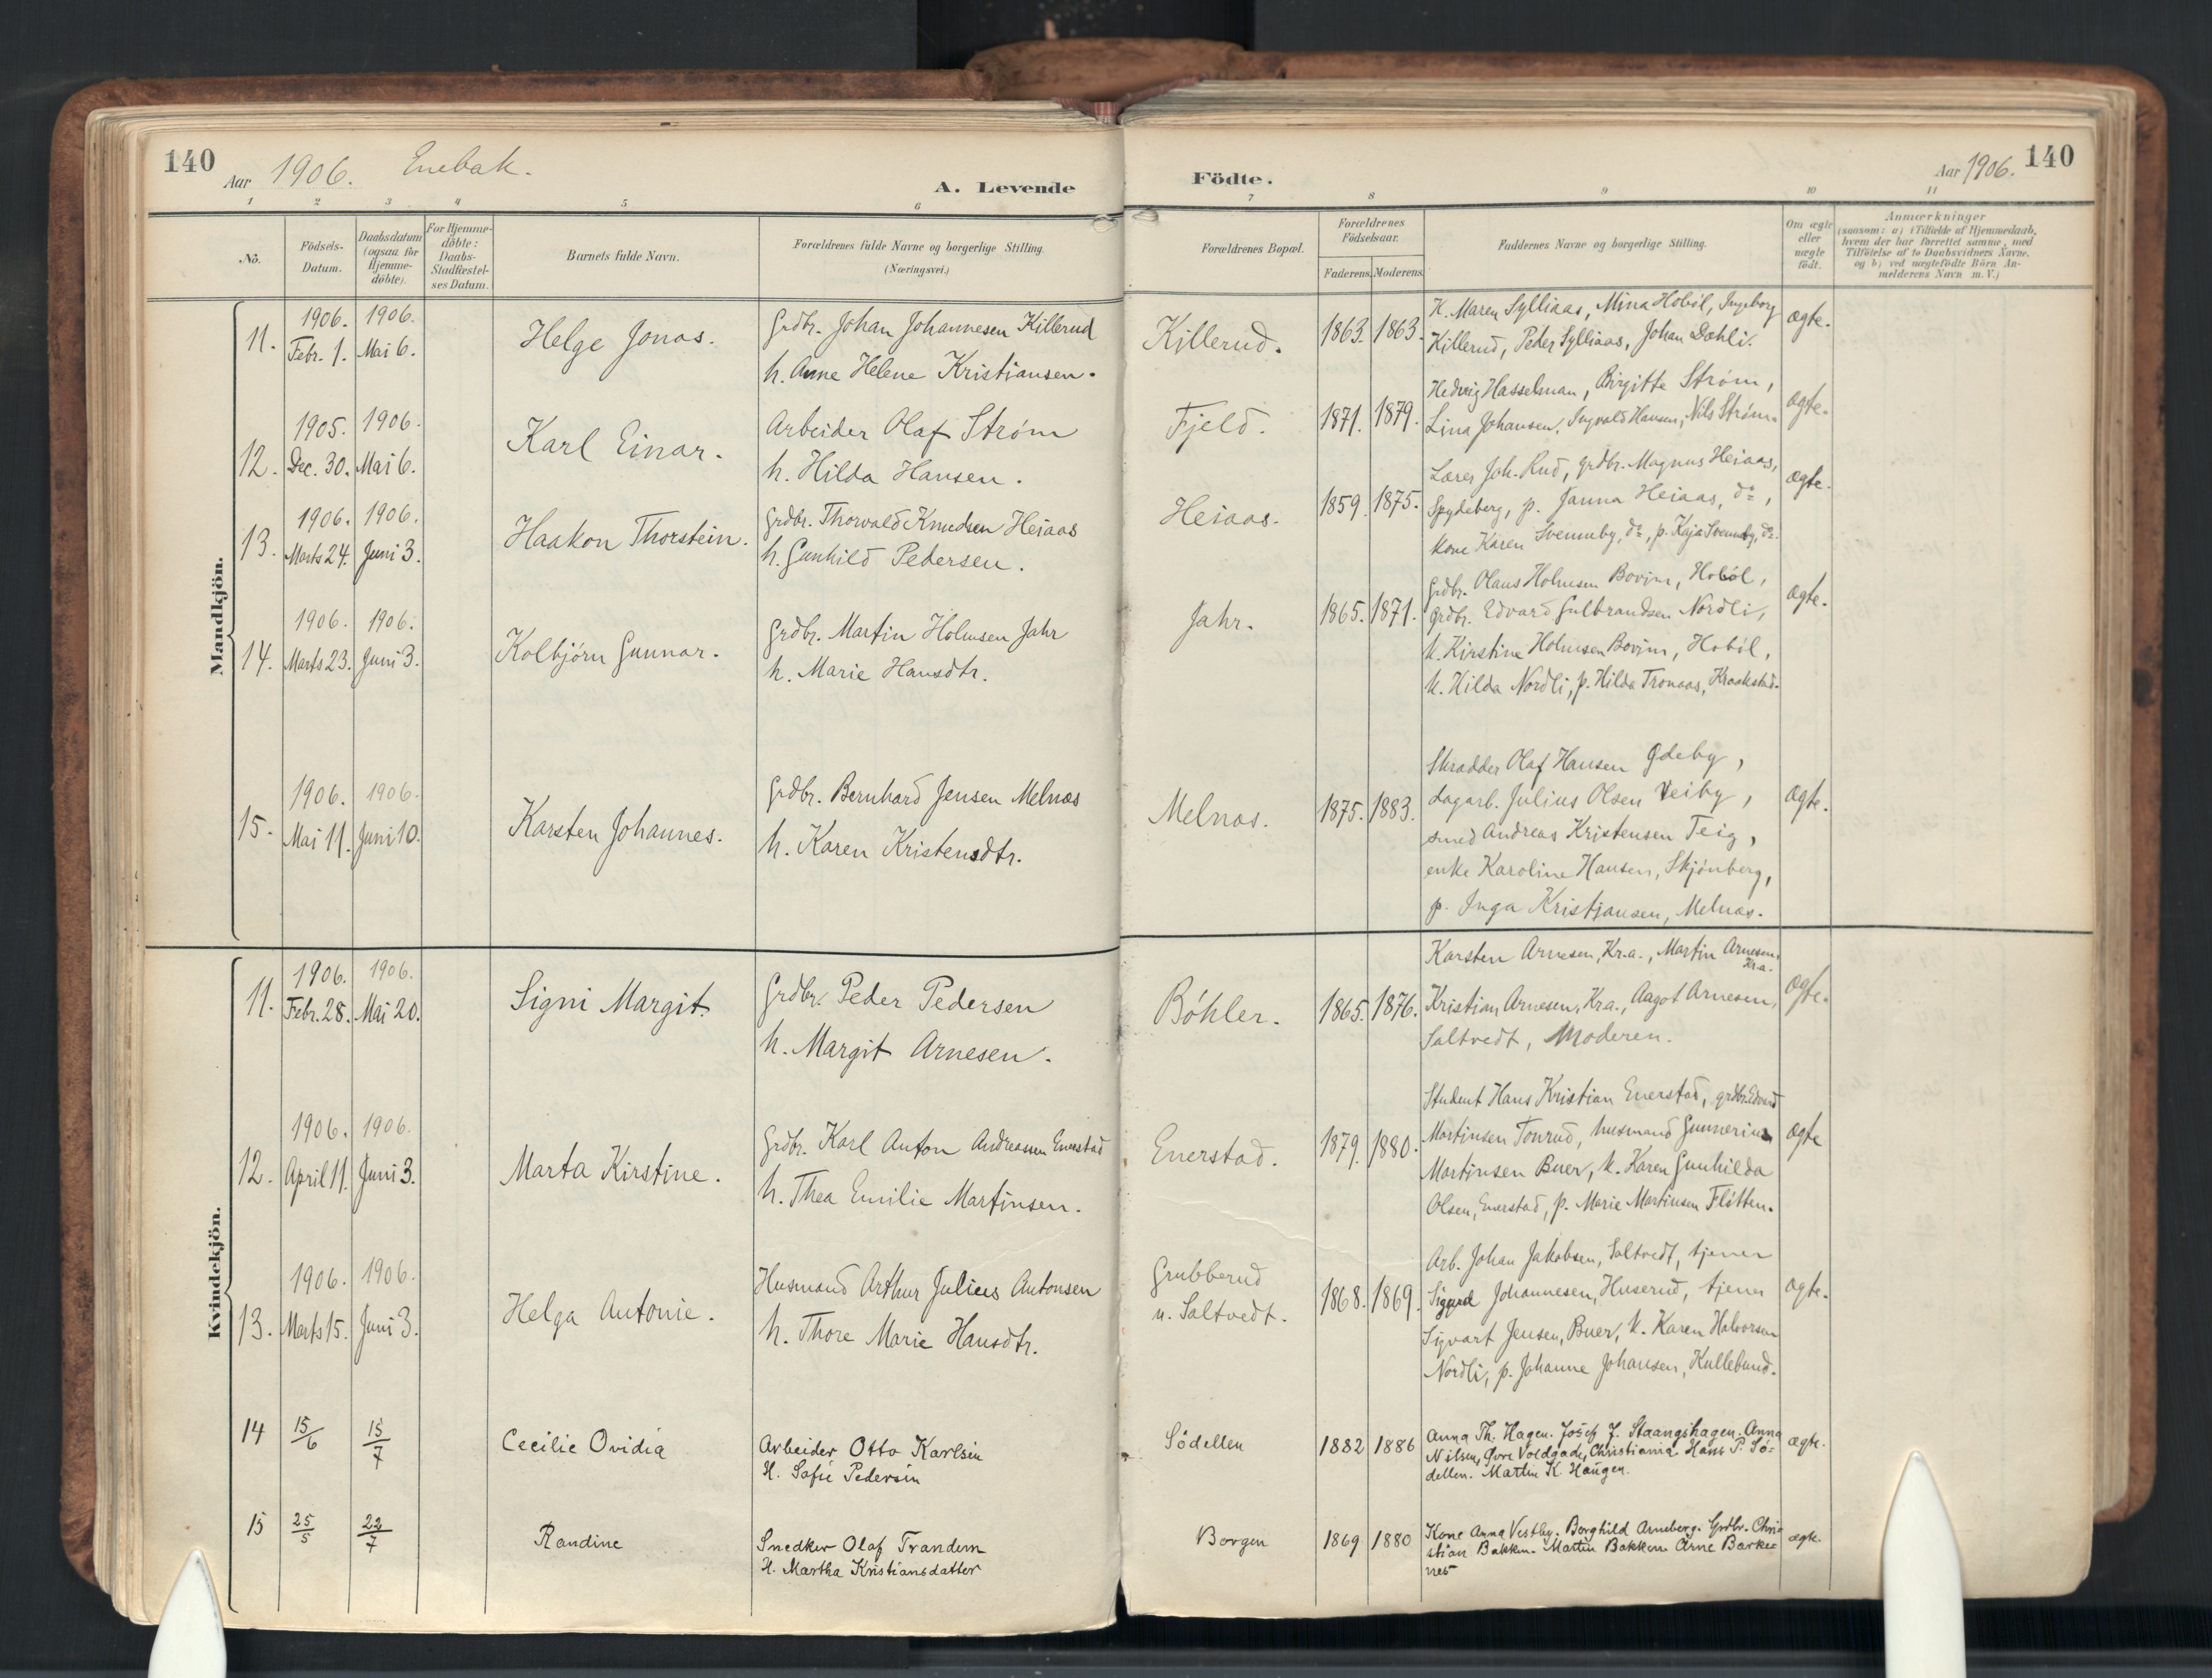 140
Aar 1906. Enebak.
A. Levende
Födte.
Aar 1906. 140
1 2 3 4 5 6 7 8 9 10 11
No.
Födsels-Datum.
Daabsdatum (ogsaa for Hjemme-döbte).
For Hjemme-döbte: Daabs-Stadfæstel-ses Datum.
Barnets fulde Navn.
Forældrenes fulde Navne og borgerlige Stilling.
(Næringsvei.)
Forældrenes Bopæl.
Forældrenes Födselsaar.
Faderens. Moderens.
Faddernes Navne og borgerlige Stilling.
Om ægte eller uægte födt.
Anmærkninger
(saasom: a) i Tilfælde af Hjemmedaab,
hvem der har forrettet samme, med
Tilföielse af to Daabsvidners Navne,
og b) ved uægtefödte Börn An-
melderens Navn m.V.)
Mandkjön.
11. 1906. Febr. 1. 1906. Mai 6. Helge Jonas.
Grdbr. Johan Johannesen Killerud
h. Anne Helene Kristiansen.
Killerud. 1863. 1863.
K. Maren Sylliaas, Mina Hobøl, Ingeborg
Killerud, Peder Sylliaas, Johan Dæhli.
ægte.
12. 1905. Dec. 30. 1906. Mai 6. Karl Einar.
Arbeider Olaf Strøm
h. Hilda Hansen.
Fjeld. 1871. 1879.
Hedvig Hasselman, Birgitte Strøm,
Lina Johansen, Ingvald Hansen, Nils Strøm.
ægte.
13. 1906. Marts 24. 1906. Juni 3. Haakon Thorstein.
Grdbr. Thorvald Knudsen Heiaas
h. Gunhild Pedersen.
Heiaas. 1859. 1875.
Lærer Joh. Rud, grdbr. Magnus Heiaas,
Spydeberg, p. Janna Heiaas, do,
kone Karen Svennby, do, p. Kaja Svennby, do.
ægte.
14. 1906. Marts 23. 1906. Juni 3. Kolbjörn Gunnar.
Grdbr. Martin Holmsen Jahr
h. Marie Hansdtr.
Jahr. 1865. 1871.
Grdbr. Olaus Holmsen Bovim, Hobøl,
grdbr. Edvard Gulbrandsen Nordli,
k. Kirstine Holmsen Bovim, Hobøl,
k. Hilda Nordli, p. Hilda Tronaas, Kraakstad.
ægte.
15. 1906. Mai 11. 1906. Juni 10. Karsten Johannes.
Grdbr. Bernhard Jensen Melnæs
h. Karen Kristensdtr.
Melnæs. 1875. 1883.
Skrædder Olaf Hansen Ødeby,
dagarb. Julius Olsen Veiby,
smed Andreas Kristensen Teig,
enke Karoline Hansen, Skjønberg,
p. Inga Kristjansen, Melnæs.
ægte.
Kvindekjön.
11. 1906. Febr. 28. 1906. Mai 20. Signi Margit.
Grdbr. Peder Pedersen
h. Margit Arnesen.
Böhler. 1865. 1876.
Karsten Arnesen, Kr.a., Martin Arnesen, Kr.a.
Kristian Arnesen, Kr.a., Aagot Arnesen,
Saltvedt, Moderen.
ægte.
12. 1906. April 11. 1906. Juni 3. Marta Kirstine.
Grdbr. Karl Anton Andreassen Enerstad
h. Thea Emilie Martinsen.
Enerstad. 1879. 1880.
Student Hans Kristian Enerstad, grdbr. Edvard
Martinsen Tonrud, husmand Gunnerius
Martinsen Buer, k. Karen Gunhilda
Olsen, Enerstad, p. Marie Martinsen Fløtten.
ægte
13. 1906. Marts 15. 1906. Juni 3. Helga Antonie.
Husmand Arthur Julius Antonsen
h. Thore Marie Hansdtr.
Grubberud
u. Saltvedt. 1868. 1869.
Arb. Johan Jakobsen, Saltvedt, tjener
Sigurd Johannesen, Huserud, tjener
Sigvart Jensen, Buer, k. Karen Halvorsen
Nordli, p. Johanne Johansen, Kullebund.
ægte.
14 15/6 15/7 Cecilie Ovidia
Arbeider Otto Karlsen
H. Sofie Pedersen
Södellen 1882 1886
Anna Th. Hagen. Josef J. Staangshagen. Anna
Nilsen, Øvre Voldgade, Christiania. Hans P. Sö-
dellen. Martin K. Haugen.
ægte.
15 25/5 22/7 Randine
Snedker Olaf Trandem
H. Martha Kristiansdatter
Borgen 1869 1880
Kone Anna Vestby. Borghild Arneberg. Grdbr. Chri-
stian Bakken. Martin Bakken. Arne Barke-
nes
ægte.